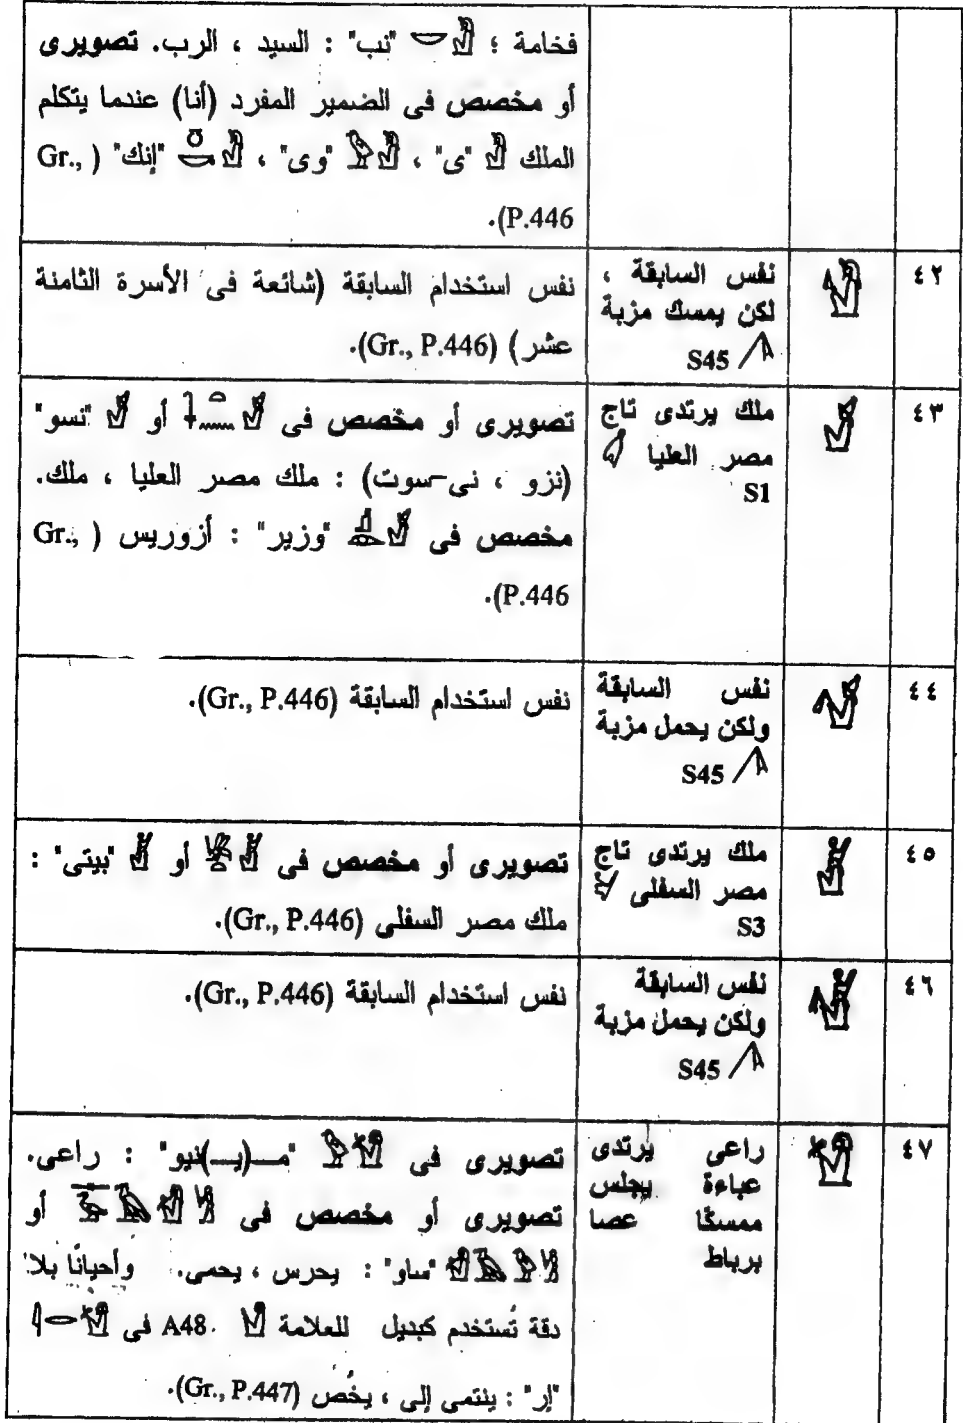 فخامة ؛ "نب" : السيد ، الرب. تصويرى
أو مخصص فى الضمير المفرد (أنا) عندما يتكلم
الملك "ى" ، "وى" ، "إنك" (Gr.,
P.446).
٤٢
نفس السابقة ،
لكن يمسك مزبة
S45
نفس استخدام السابقة (شائعة فى الأسرة الثامنة
عشر) (Gr., P.446).
٤٣
ملك يرتدى تاج
مصر العليا
S1
تصويرى أو مخصص فى أو "نسو"
(نزو ، نى-سوت) : ملك مصر العليا ، ملك.
مخصص فى "وزير" : أزوريس (Gr.,
P.446).
٤٤
نفس السابقة
ولكن يحمل مزبة
S45
نفس استخدام السابقة (Gr., P.446).
٤٥
ملك يرتدى تاج
مصر السفلى
S3
تصويرى أو مخصص فى أو "بيتى" :
ملك مصر السفلى (Gr., P.446).
٤٦
نفس السابقة
ولكن يحمل مزبة
S45
نفس استخدام السابقة (Gr., P.446).
٤٧
راعى يرتدى
عباءة يجلس
ممسكًا عصا
برباط
تصويرى فى "مـ(يـ)نيو" : راعى.
تصويرى أو مخصص فى أو
"ساو" : يحرس ، يحمى. وأحيانًا بلا
دقة تُستخدم كبديل للعلامة A48 فى
"إر" : ينتمى إلى ، يخُص (Gr., P.447).